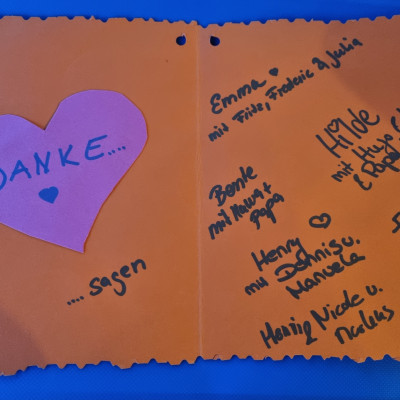 DANKE....
....sagen
Emma
mit Fritz, Frederic & Julia
Hilde
mit Hugo
& Papa
Bente
mit Mama +
Papa
Henry
mit Dennis u.
Manuela
Hennig Nicole u.
Markus